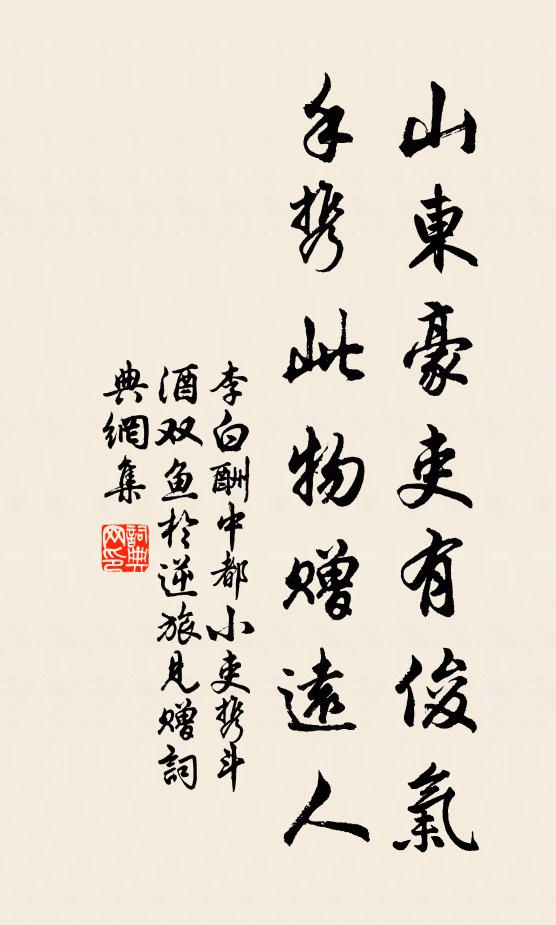 山東豪吏有俊氣
手携此物贈遠人
李白酬中都小吏携斗
酒双鱼於逆旅见赠詞
典網集
詞典網印